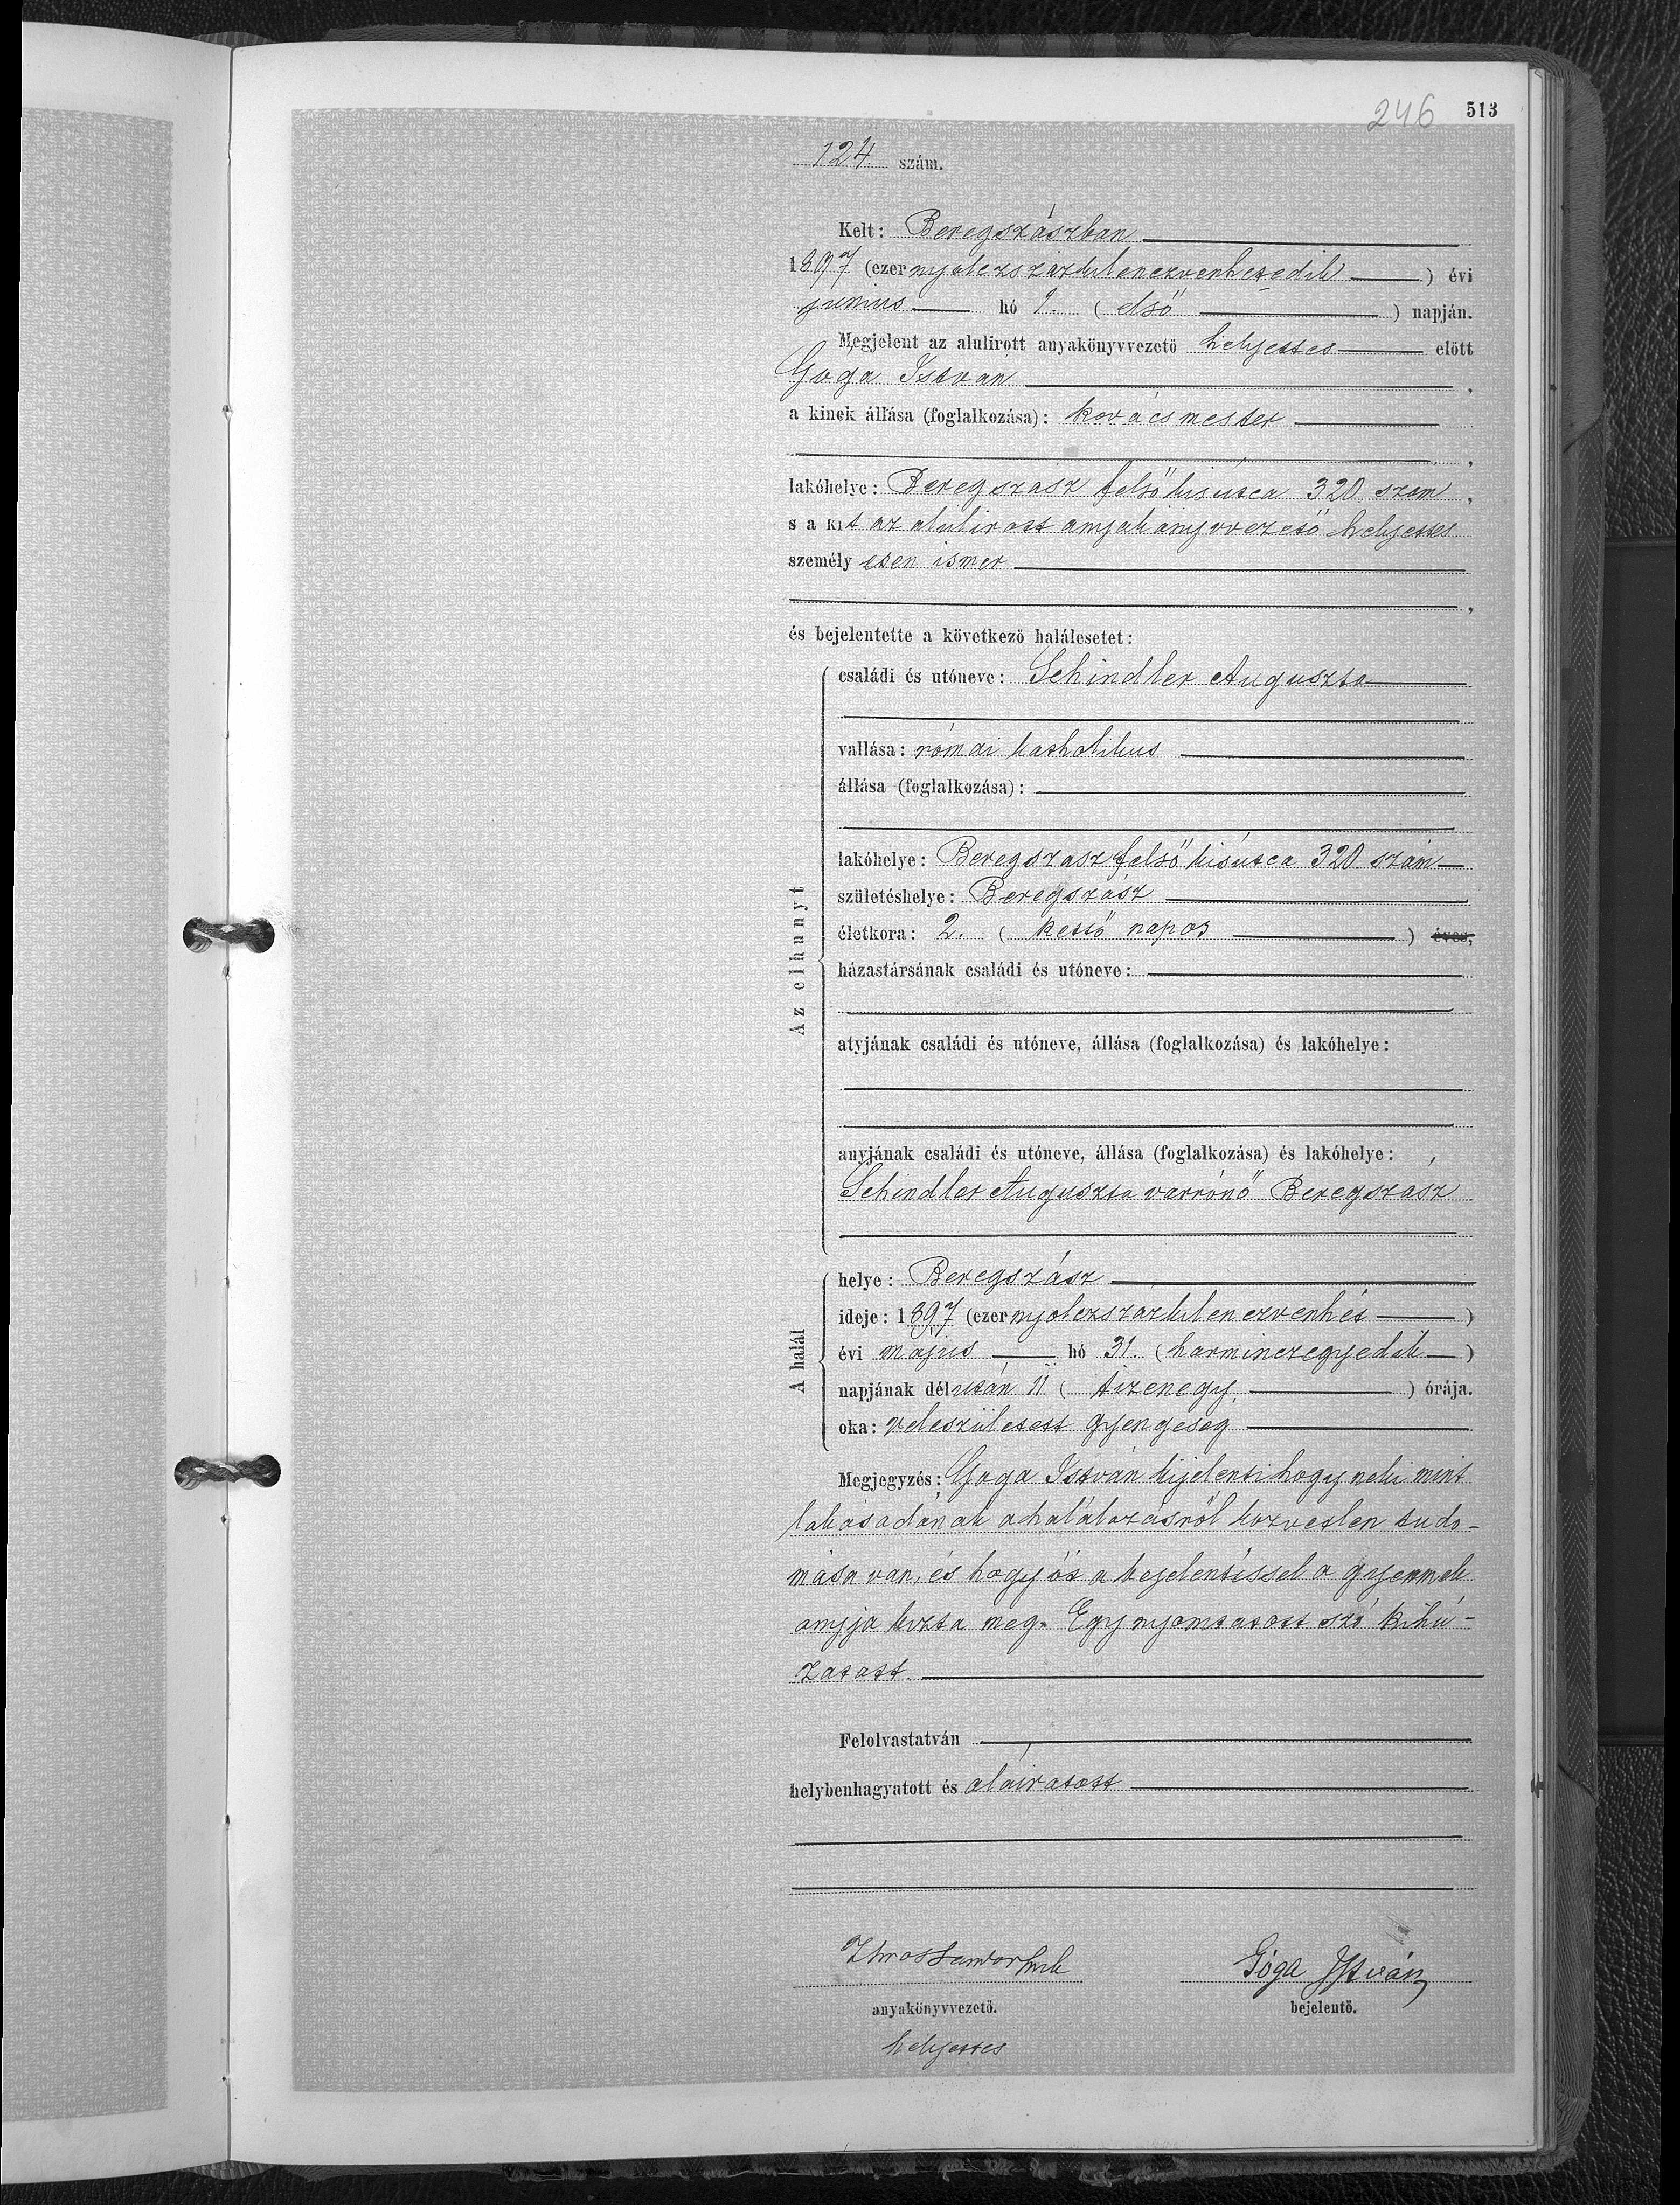 246 513
124 szám.
Kelt: Beregszászban
1897 (ezer nyolczszázkilenczvenhetedik) évi
junius hó 1. (első) napján.
Megjelent az alulirott anyakönyvvezető helyettes előtt
Goga István,
a kinek állása (foglalkozása): kovácsmester
,
lakóhelye: Beregszász felsőkisutca 320 szám,
s a kit az alulirott anyakönyvvezető helyettes
személyesen ismer
,
és bejelentette a következő halálesetet:
Az elhunyt
családi és utóneve: Schindler Auguszta
vallása: római katholikus
állása (foglalkozása):
lakóhelye: Beregszász felsőkisutca 320 szám
születéshelye: Beregszász
életkora: 2. (kettő napos) éves,
házastársának családi és utóneve:
atyjának családi és utóneve, állása (foglalkozása) és lakóhelye:
anyjának családi és utóneve, állása (foglalkozása) és lakóhelye:
Schindler Auguszta varrónő Beregszász
A halál
helye: Beregszász
ideje: 1897 (ezer nyolczszázkilenczvenhét)
évi május hó 31. (harminczegyedik)
napjának délután 11 (tizenegy) órája.
oka: veleszületett gyengeség
Megjegyzés: Goga István kijelenti hogy neki mint
lakásadának a halálozásról közvetlen tudo-
mása van, és hogy őt a bejelentéssel a gyermek
anyja bízta meg. Egy nyomtatott szó kihú-
zatott.
Felolvastatván
helybenhagyatott és aláiratott
Góga István
anyakönyvvezető. bejelentő.
helyettes